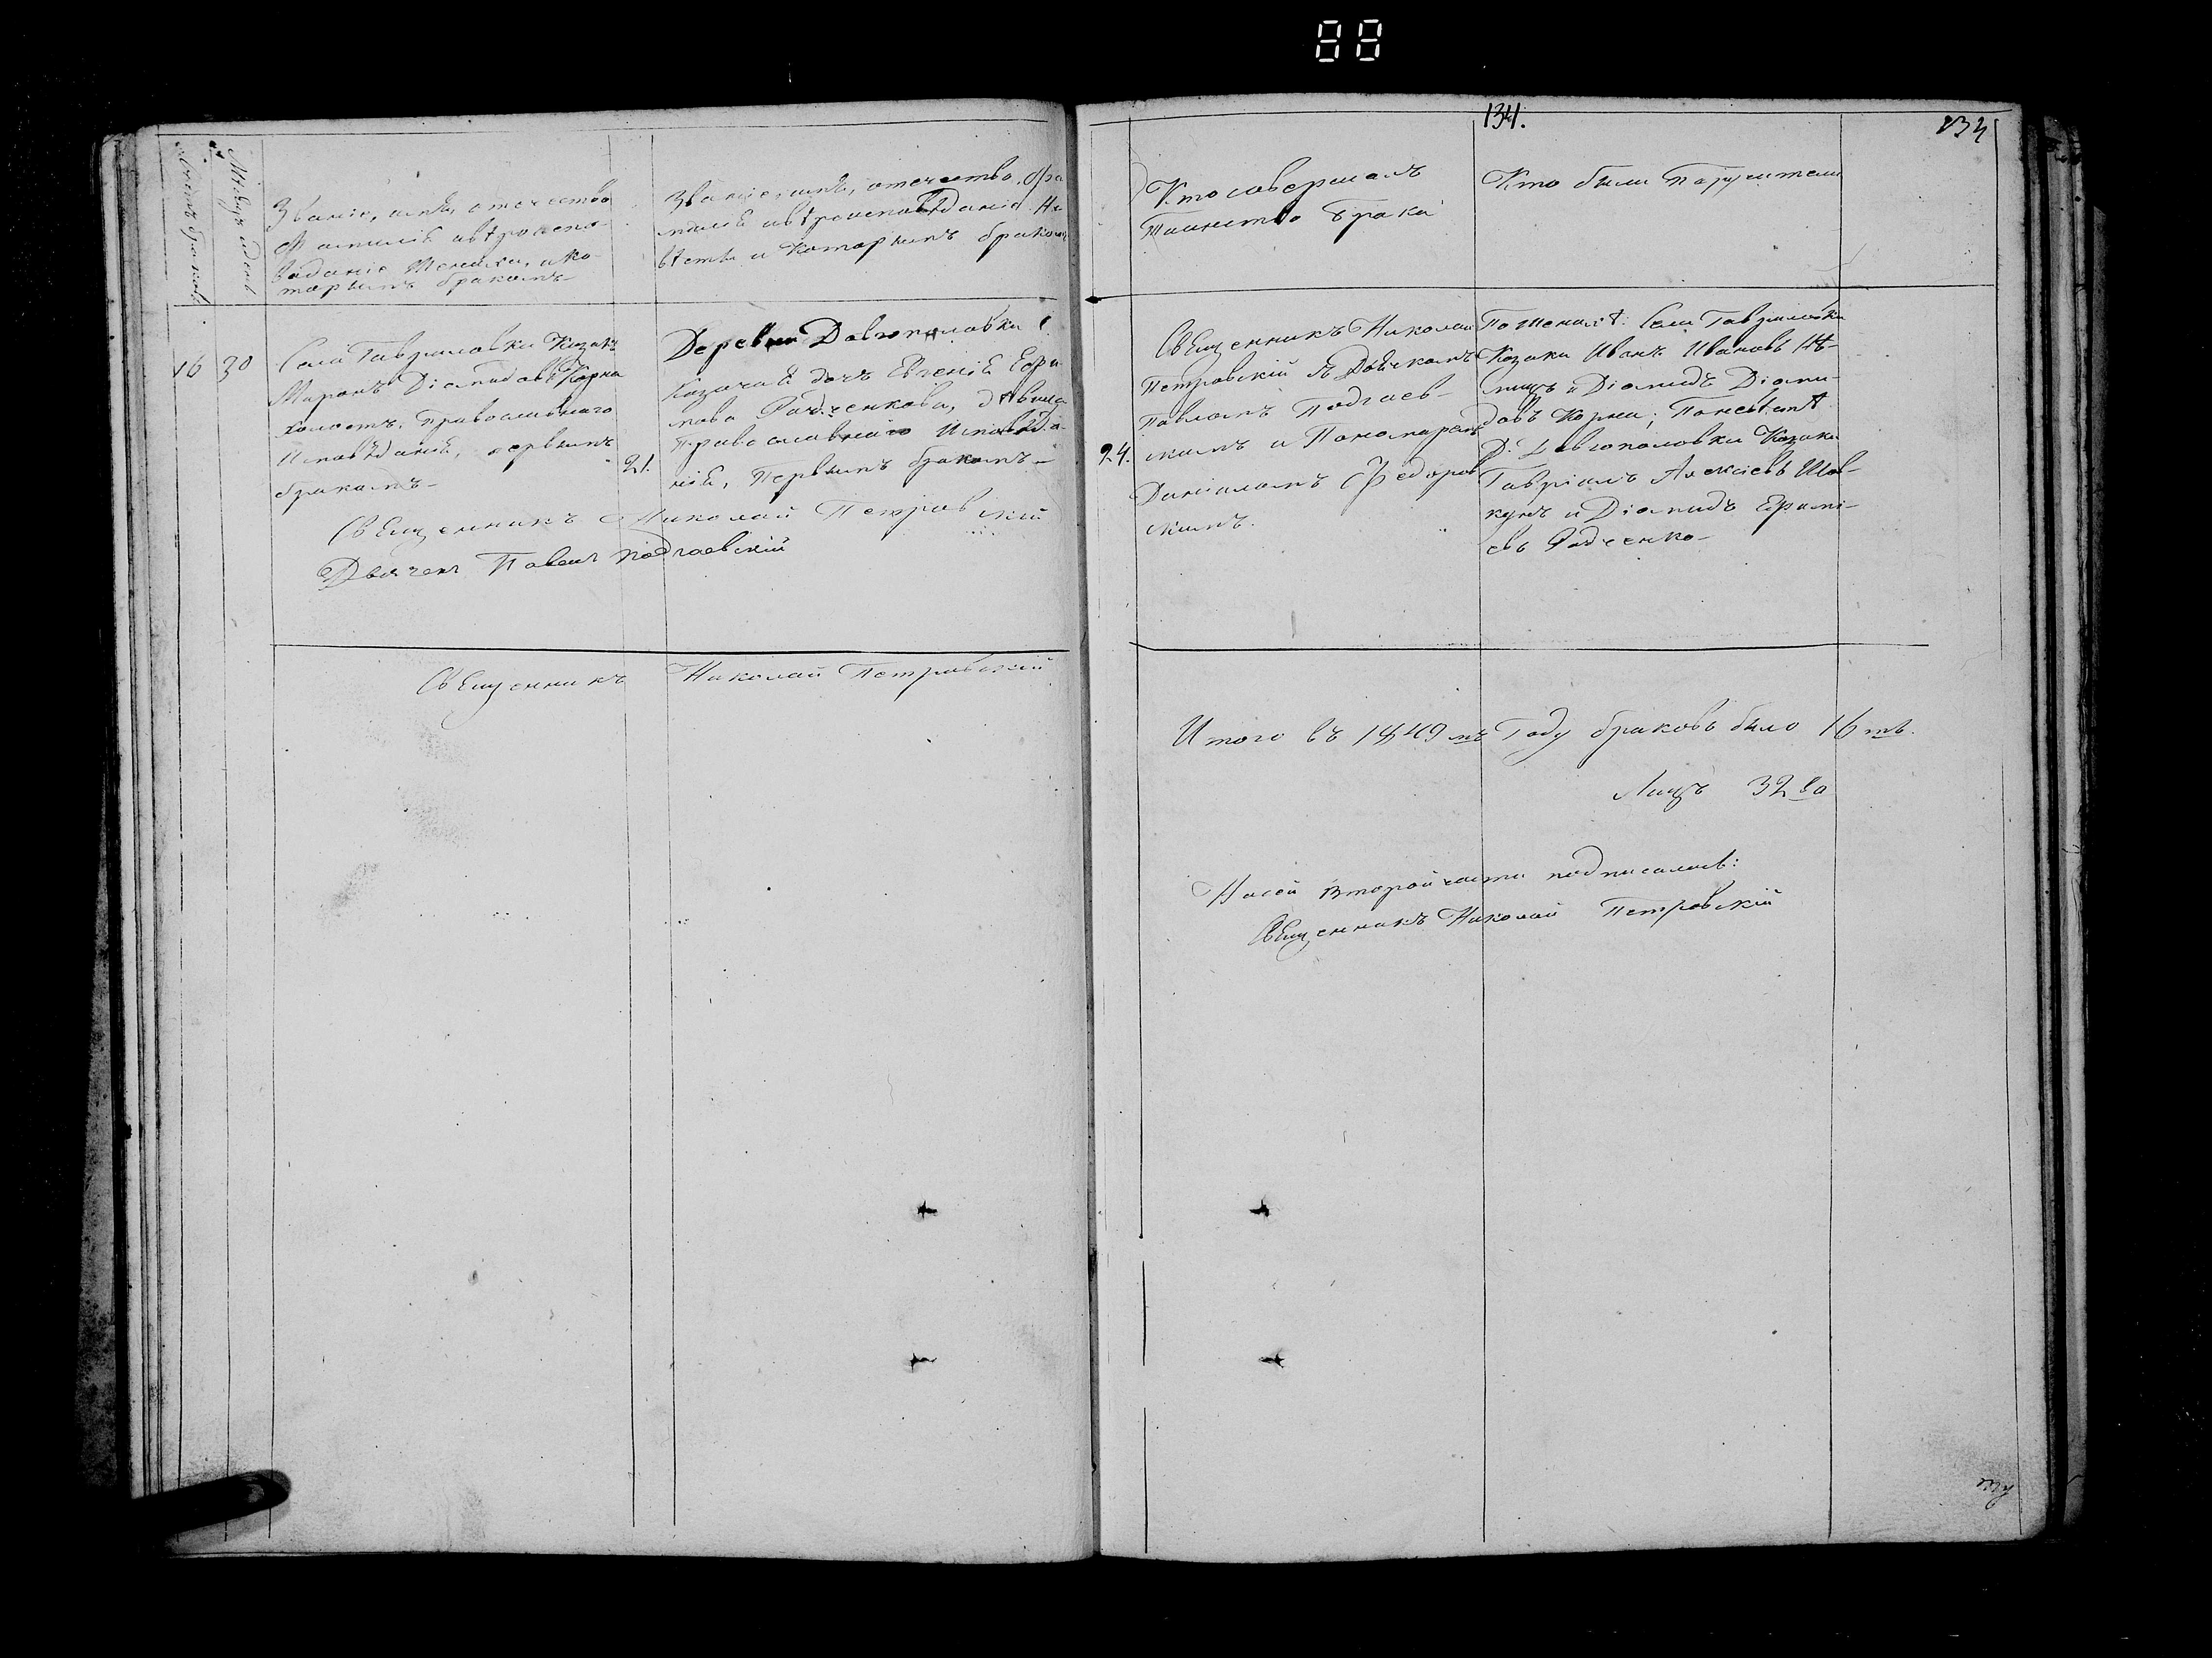 88
134.
134
Счетъ браковъ
Мѣсяцъ и день
Званіе, имя, отечество
Фамилія и вѣроиспо-
вѣданіе Жениха, и ко-
торымъ бракомъ
Званіе, имя, отечество, Фа
милія и вѣроисповѣданіе Не
вѣсты и Которымъ бракомъ
Кто совершалъ
Таинство брака
Кто были Поручители
16
30
Села Гавриловки Козакъ
Миронъ Діомидовъ Корма
холостъ, Православнаго
Исповѣданія, первымъ
бракомъ
21.
Деревни Довгополовки
Козачья дочь Евгенія Ефи
мова Радченкова, дѣвица
Православнаго Исповѣда-
нія, Первымъ бракомъ
24.
Священникъ Николай
Петровскій съ Дьячкомъ
Павломъ Подгаев-
скимъ и Пономаремъ
Даніиломъ Федоров
скимъ.
По Женихѣ: Села Гавриловки
Козаки Иванъ Ивановъ
и Діомидъ Діоми-
довъ Корма; По невѣстѣ
Д. Довгополовки Козаки
Гавріилъ Алексіевъ Шов-
кунъ и Діомидъ Ефимі-
евъ Радченко
Священникъ Николай Петровскій
Дьячекъ Павелъ Подгаевскій
Священникъ Николай Петровскій
Итого въ 1849мъ Году браковъ было 16ть.
Лицъ 32ва
На сей второй части подписались:
Священникъ Николай Петровскій